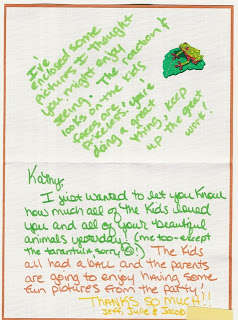 I've enclosed some
pictures I thought
you might enjoy
seeing. The reaction &
looks on the kids
faces are
priceless! You're
doing a great
thing, keep
up the great
work!
Kathy,
I just wanted to let you know
how much all of the kids loved
you and all of your beautiful
animals yesterday! (me too-except
the tarantula-sorry ☹)! The kids
all had a ball and the parents
are going to enjoy having some
fun pictures from the party!
THANKS SO MUCH!!
Jeff, Julie & Jacob